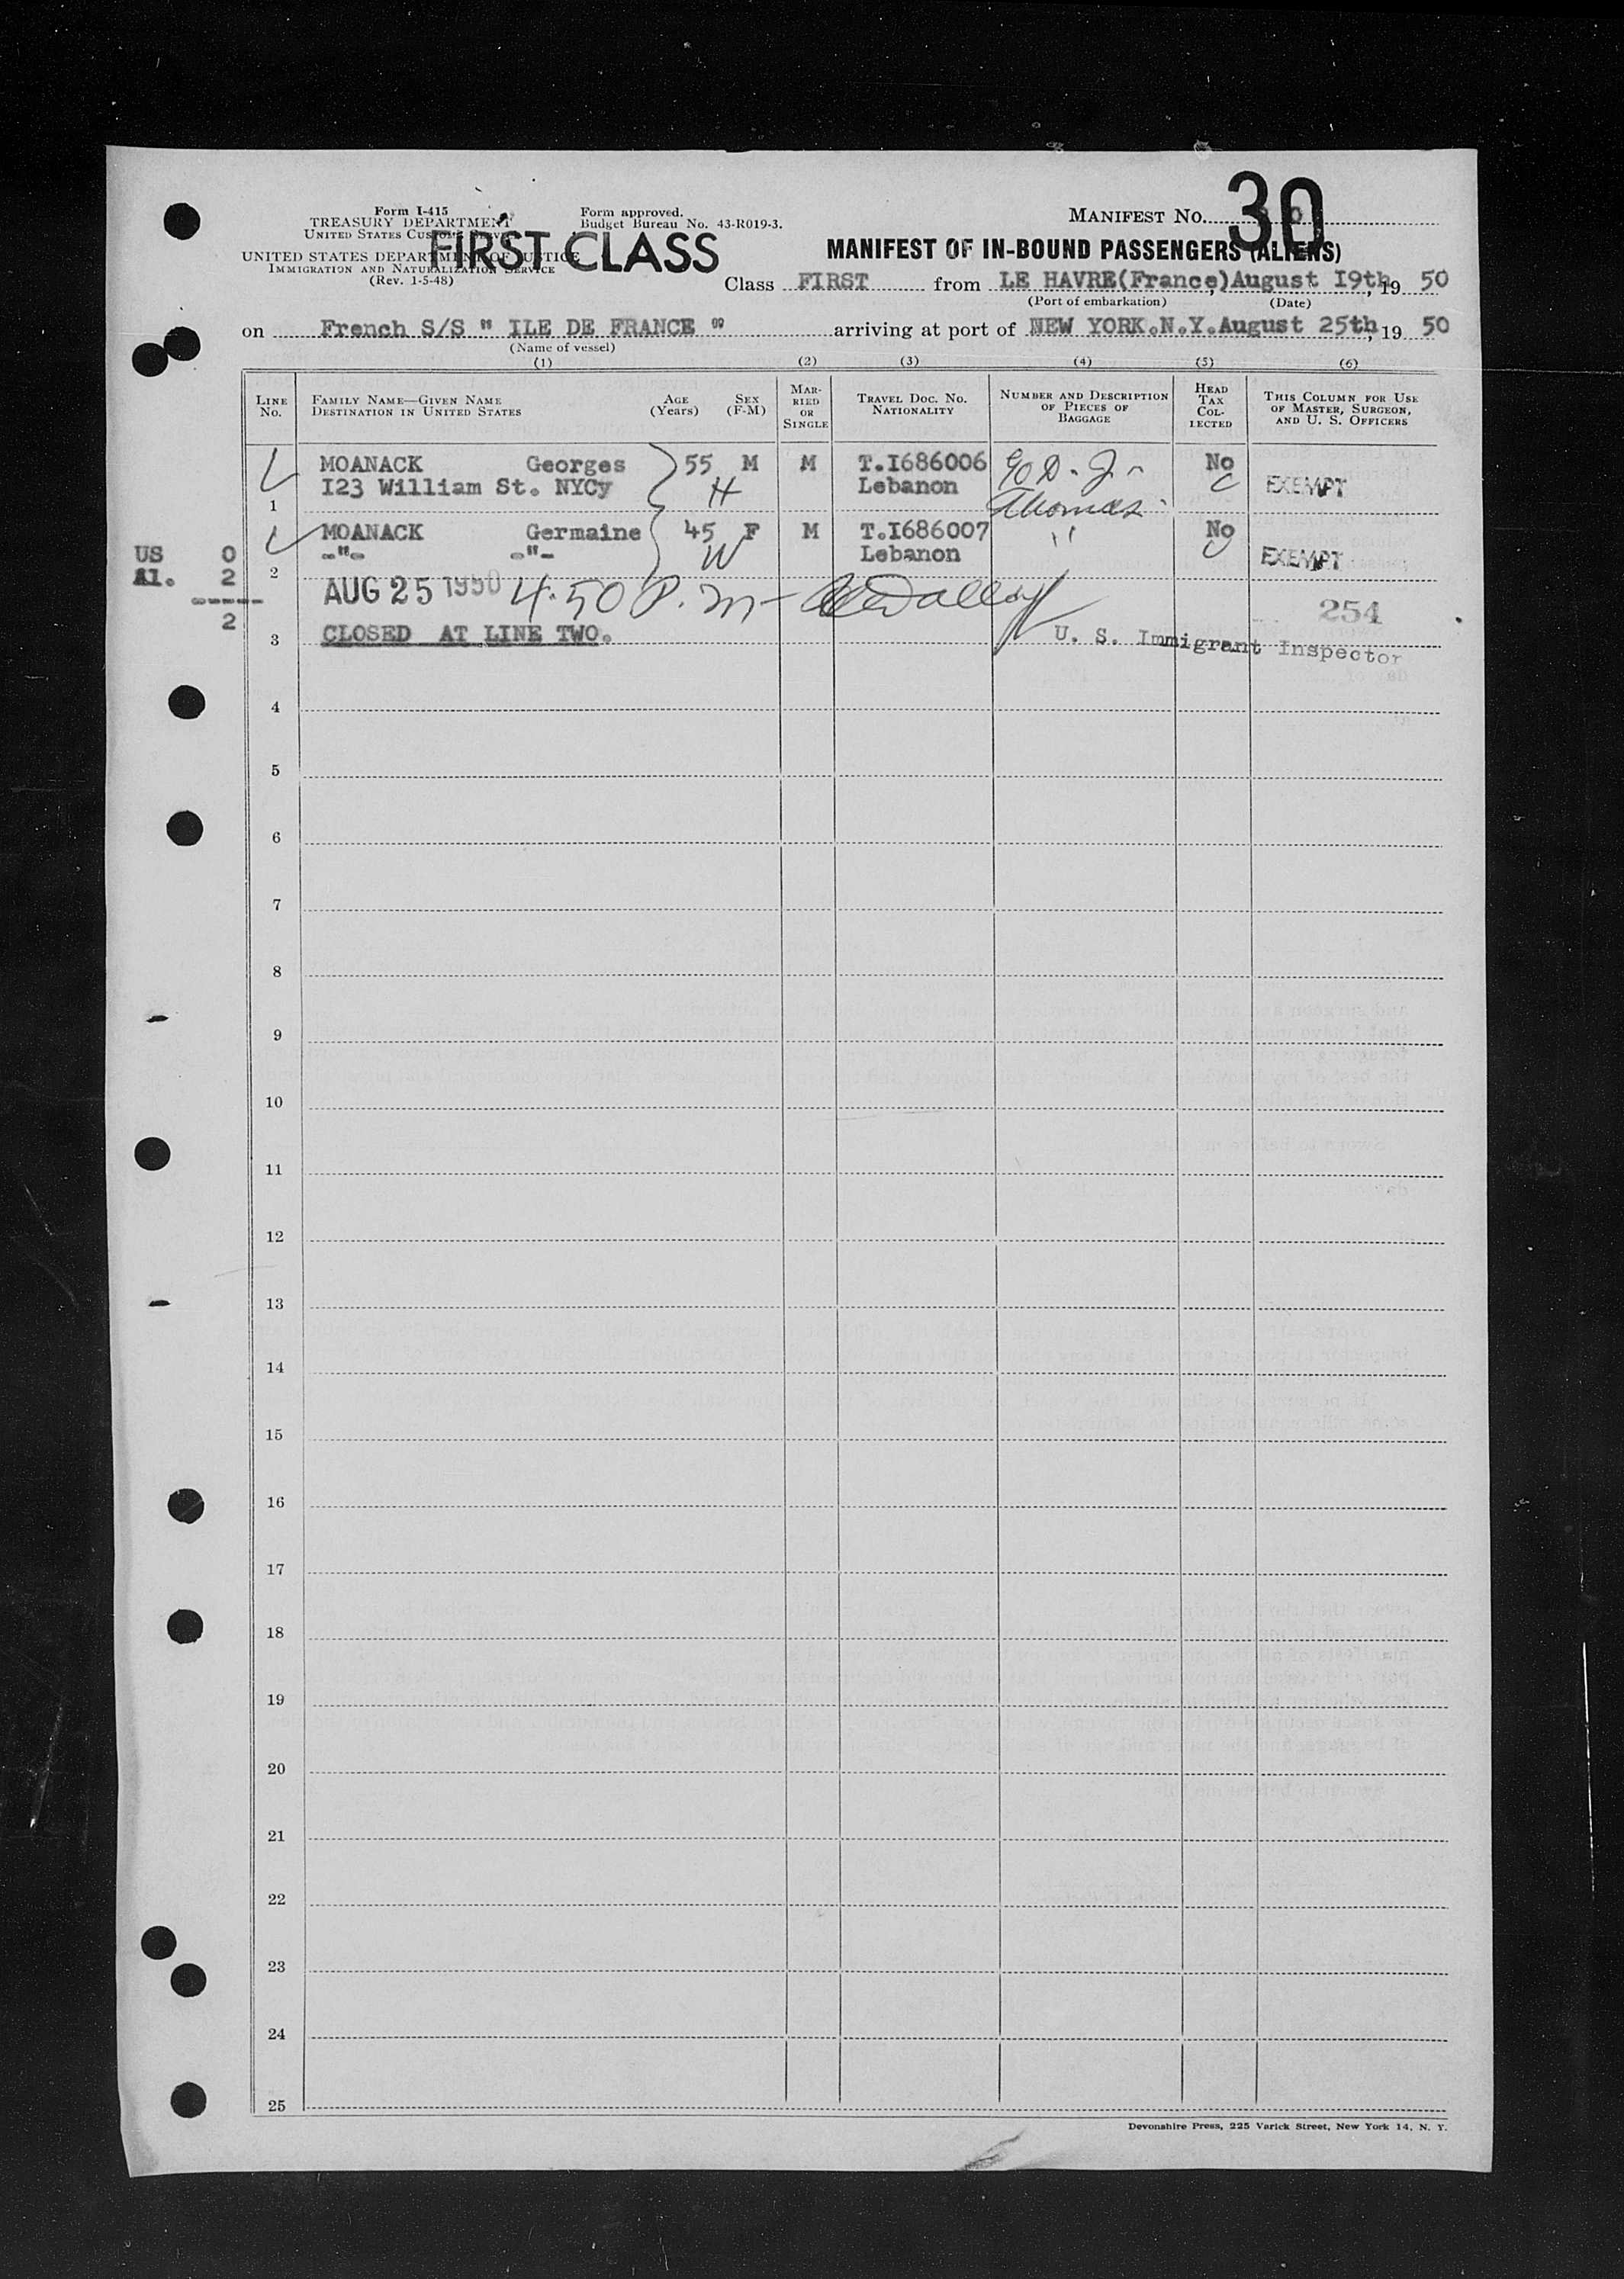 Form I-415
TREASURY DEPARTMENT
UNITED STATES CUSTOMS SERVICE
UNITED STATES DEPARTMENT OF JUSTICE
IMMIGRATION AND NATURALIZATION SERVICE
(Rev. 1-5-48)
Form approved.
Budget Bureau No. 43-R019-3.
FIRST CLASS
MANIFEST NO. 30
MANIFEST OF IN-BOUND PASSENGERS (ALIENS)
Class FIRST from LE HAVRE(France), August I9th, 19 50
(Port of embarkation) (Date)
on French S/S " ILE DE FRANCE " arriving at port of NEW YORK.N.Y. August 25th, 19 50
(Name of vessel)
(1) (2) (3) (4) (5) (6)
LINE No. FAMILY NAME—GIVEN NAME DESTINATION IN UNITED STATES AGE (Years) SEX (F-M) MARRIED OR SINGLE TRAVEL DOC. NO. NATIONALITY NUMBER AND DESCRIPTION OF PIECES OF BAGGAGE HEAD TAX COLLECTED THIS COLUMN FOR USE OF MASTER, SURGEON, AND U. S. OFFICERS
MOANACK Georges 55 M M T.I686006 No
1 I23 William St. NYCy H Lebanon Thomas EXEMPT
MOANACK Germaine 45 F M T.I686007 " No
2 -"- -"- W Lebanon EXEMPT
US 0
Al. 2
2
AUG 25 1950 4.50 P.m 254
3 CLOSED AT LINE TWO. U. S. Immigrant Inspector
4
5
6
7
8
9
10
11
12
13
14
15
16
17
18
19
20
21
22
23
24
25
Devonshire Press, 225 Varick Street, New York 14, N. Y.